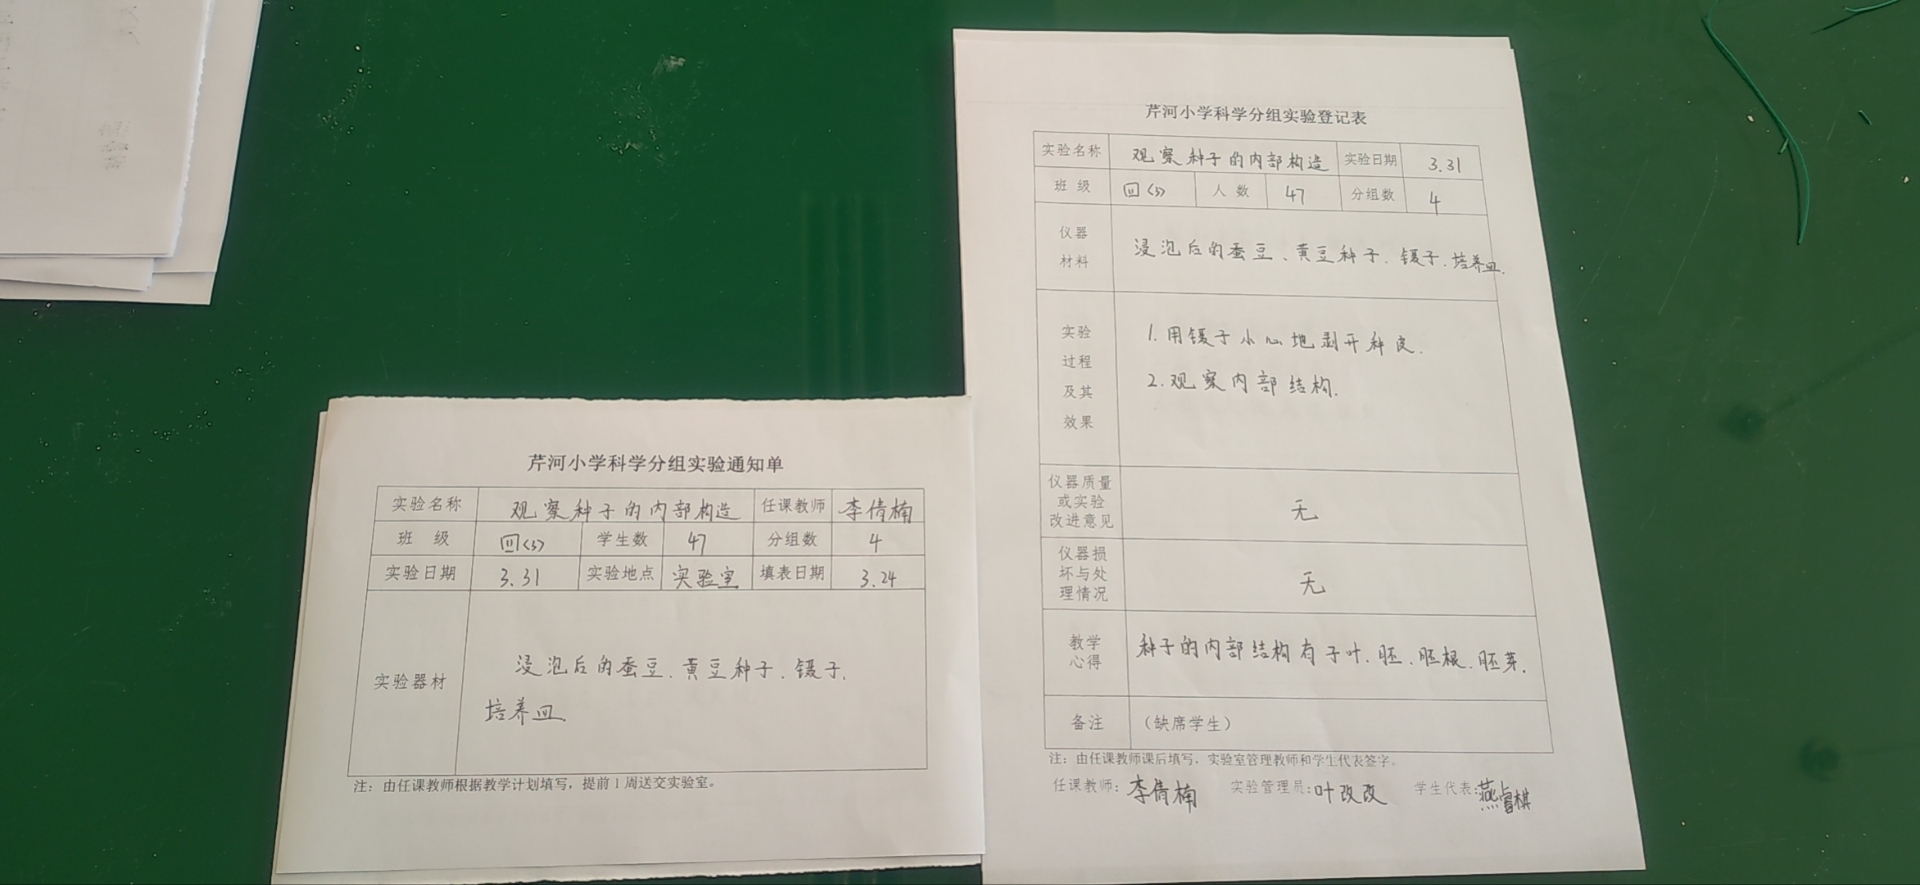 芹河小学科学分组实验通知单
实验名称 观察种子的内部构造 任课教师 李倩楠
班 级 四(3) 学生数 47 分组数 4
实验日期 3.31 实验地点 实验室 填表日期 3.24
实验器材 浸泡后的蚕豆、黄豆种子、镊子、
培养皿.
注：由任课教师根据教学计划填写，提前1周送交实验室。
芹河小学科学分组实验登记表
实验名称 观察种子的内部构造 实验日期 3.31
班 级 四(3) 人 数 47 分组数 4
仪器
材料
浸泡后的蚕豆、黄豆种子、镊子、培养皿.
实验
过程
及其
效果
1.用镊子小心地剥开种皮.
2.观察内部结构.
仪器质量
或实验
改进意见
无
仪器损
坏与处
理情况
无
教学
心得
种子的内部结构有子叶、胚、胚根、胚芽.
备注 （缺席学生）
注：由任课教师课后填写，实验室管理教师和学生代表签字。
任课教师：李倩楠 实验管理员：叶改改 学生代表：燕睿棋